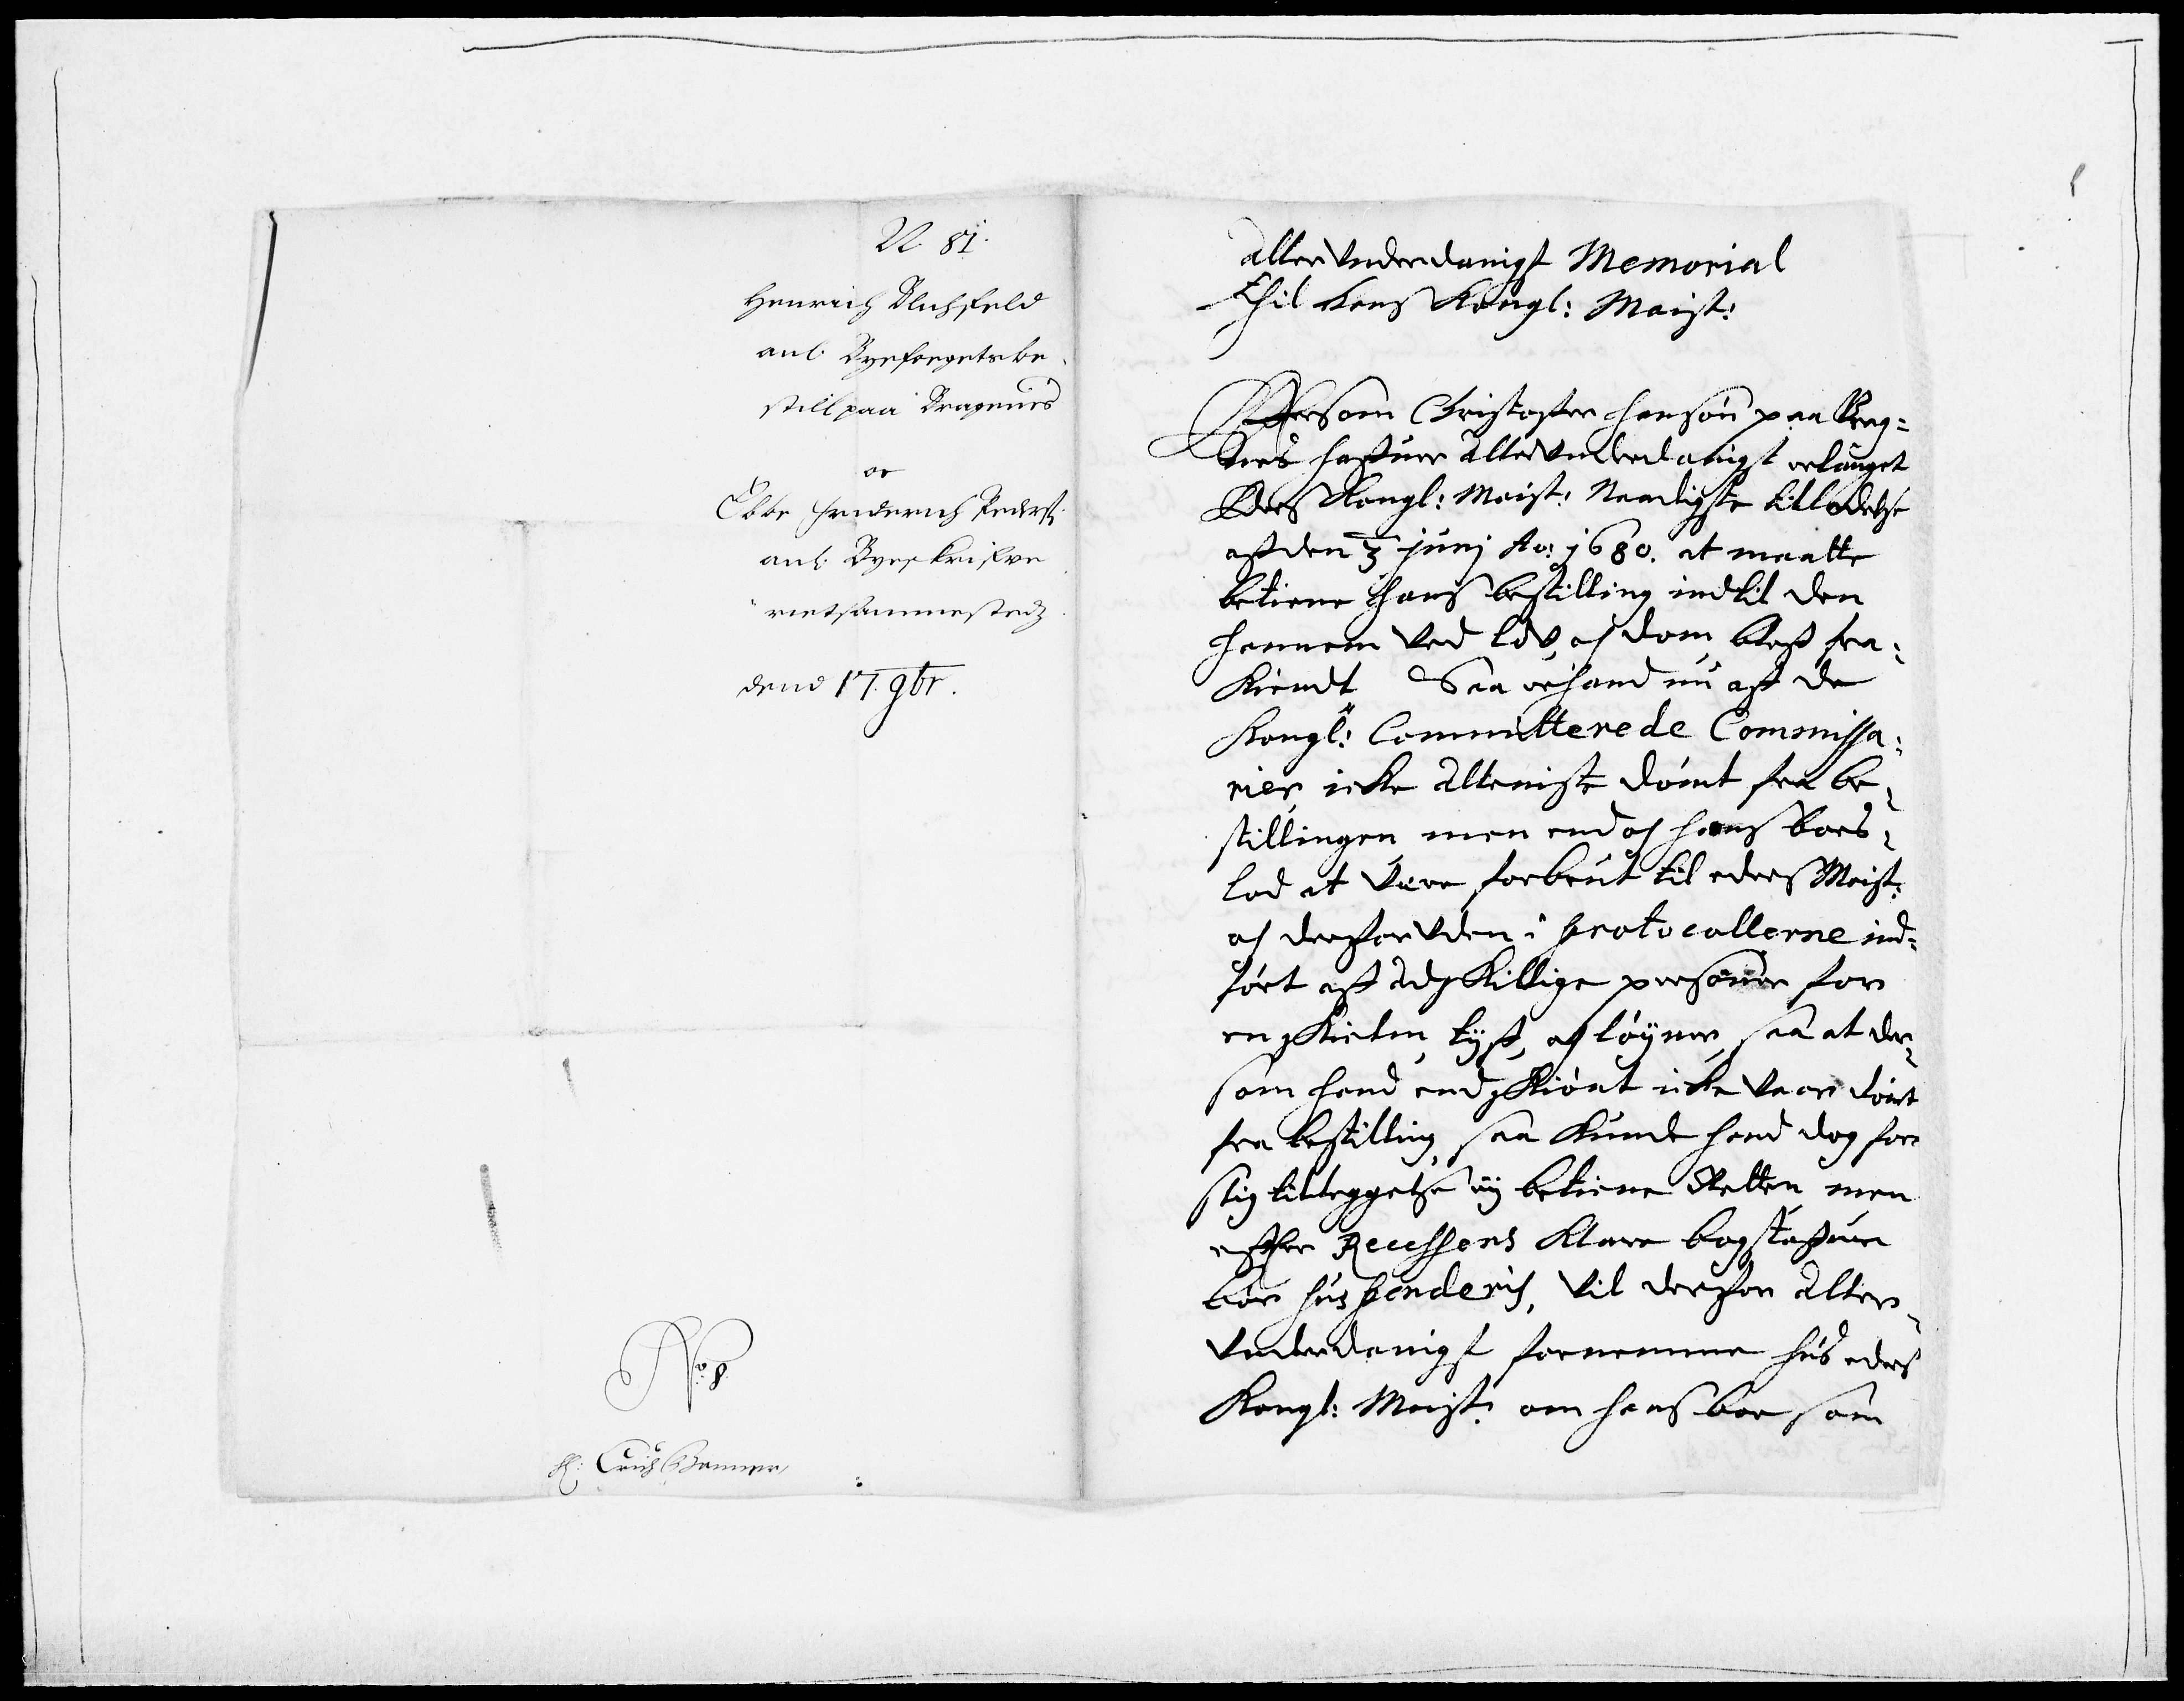 N. 81.
Henrich
anl. Byefogets be¬
still paa Bragenis
oc
Ebbe Friderich Peders:
anl. Byeskrifve
rietsammestedz
dend 17. 9br.
No. 8
H: Erich Banner
Allerunderdanigst Memorial
Thil hans Kongl: Maist:
Effersom Christoffer Hansøn paa Brag¬
nes hafuer Allerunderdanigst erlanget
Eders Kongl: Maist: Naadigste tilladelse
aff den 3 junj Ao: 1680. at maatte
betiene hans bestilling indtil den
hannem ved lov och dom bleff fra¬
kiendt Saa er hand nu aff de
Kongl: Committerede Commissa¬
rier icke Alleniste dømt fra be¬
stillingen men end och hans boes¬
lod at være forbrut til eders Maist:
och derforuden i protocollerne ind¬
ført aff adskillige personer for
en skielm, tyff, och løgner, saa at der¬
som hand end skiønt icke vaar dømt
fra bestilling, saa kunde hand dog for
slig tilleggelse ey betiene Retten men
effter Recessens klare bogstafuer
bør suspenderis, vil derfor Aller¬
underdanigst fornemme hus eders
Kongl: Maist: om hans boe som